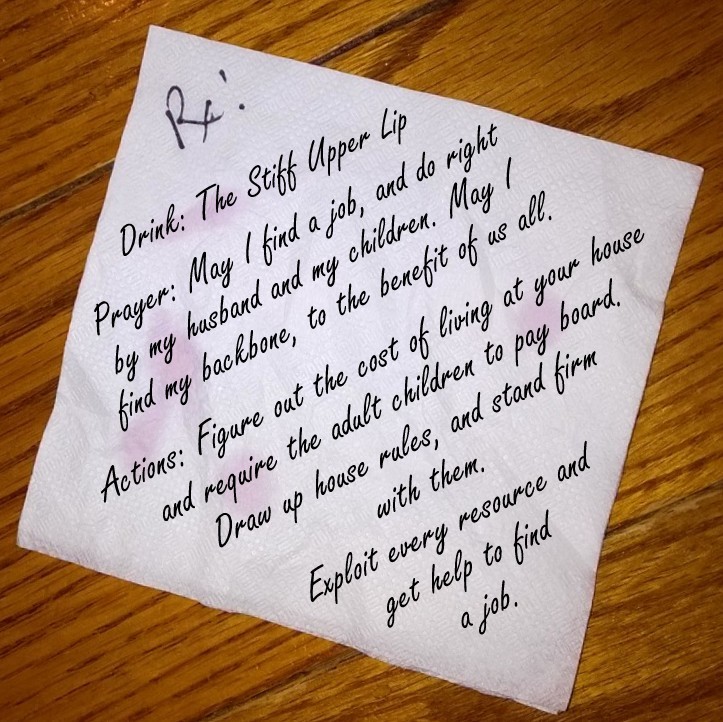 Rx:
Drink: The Stiff Upper Lip
Prayer: May I find a job, and do right
by my husband and my children. May I
find my backbone, to the benefit of us all.
Actions: Figure out the cost of living at your house
and require the adult children to pay board.
Draw up house rules, and stand firm
with them.
Exploit every resource and
get help to find
a job.